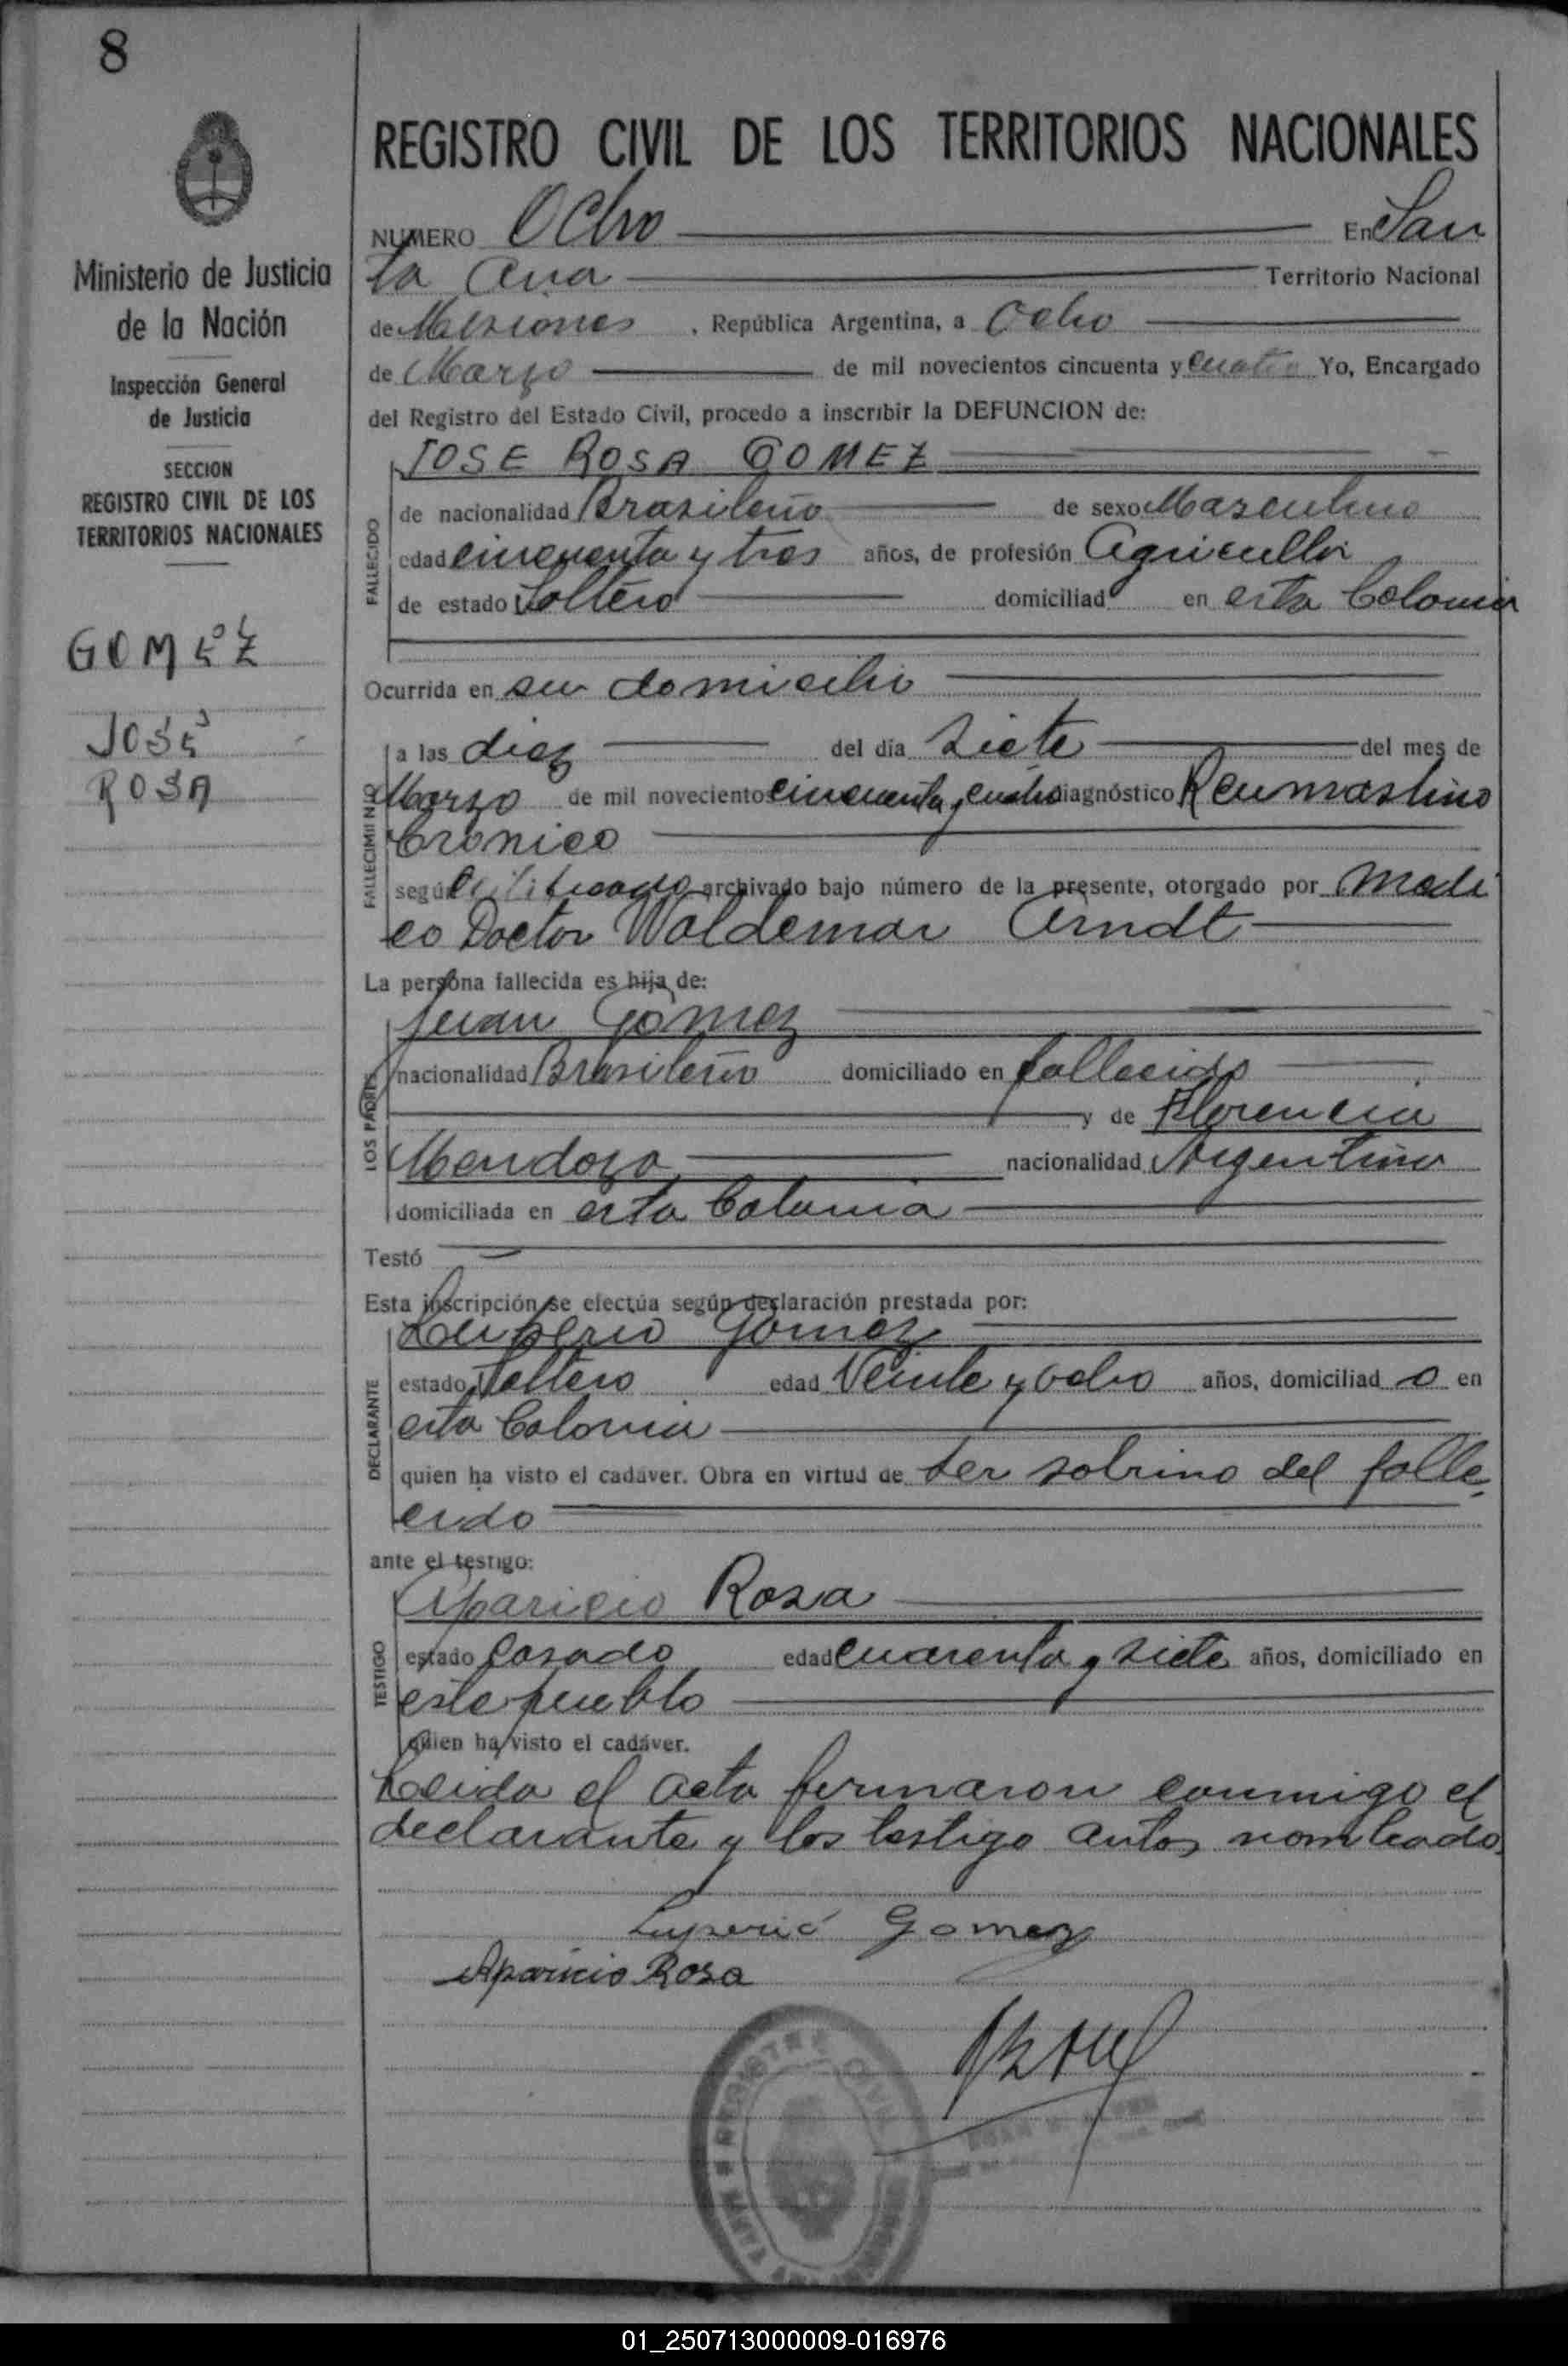 8
Ministerio de Justicia
de la Nación
Inspección General
de Justicia
SECCION
REGISTRO CIVIL DE LOS
TERRITORIOS NACIONALES
GOMEZ
JOSE
ROSA
REGISTRO CIVIL DE LOS TERRITORIOS NACIONALES
NUMERO Ocho En San
ta Ana Territorio Nacional
de Misiones , República Argentina, a Ocho
de Marzo de mil novecientos cincuenta y cuatro Yo, Encargado
del Registro del Estado Civil, procedo a inscribir la DEFUNCION de:
JOSE ROSA GOMEZ
FALLECIDO
de nacionalidad Brasileño de sexo Masculino
edad cincuenta y tres años, de profesión Agricultor
de estado Soltero domiciliad en esta Colonia
Ocurrida en su domicilio
FALLECIMIENTO
a las diez del día siete del mes de
Marzo de mil novecientos cincuenta y cuatro diagnóstico Reumastino
Cronico
según archivado bajo número de la presente, otorgado por Medi
co Doctor Waldemar Arndt
La persona fallecida es hija de:
LOS PADRES
Juan Gomez
nacionalidad Brasileño domiciliado en fallecido
y de Florencia
Mendoza nacionalidad Argentina
domiciliada en esta Colonia
Testó
Esta inscripción se efectúa según declaración prestada por:
DECLARANTE
Luperio Gomez
estado Soltero edad Veinte y ocho años, domiciliad o en
esta Colonia
quien ha visto el cadáver. Obra en virtud de ser sobrino del falle
cido
ante el testigo:
TESTIGO
Aparicio Rosa
estado Casado edad cuarenta y siete años, domiciliado en
este pueblo
quien ha visto el cadáver.
Leida el acta firmaron conmigo el
declarante y los testigo antes nombrados
Luperio Gomez
Aparicio Rosa
REGISTRO CIVIL
01_250713000009-016976